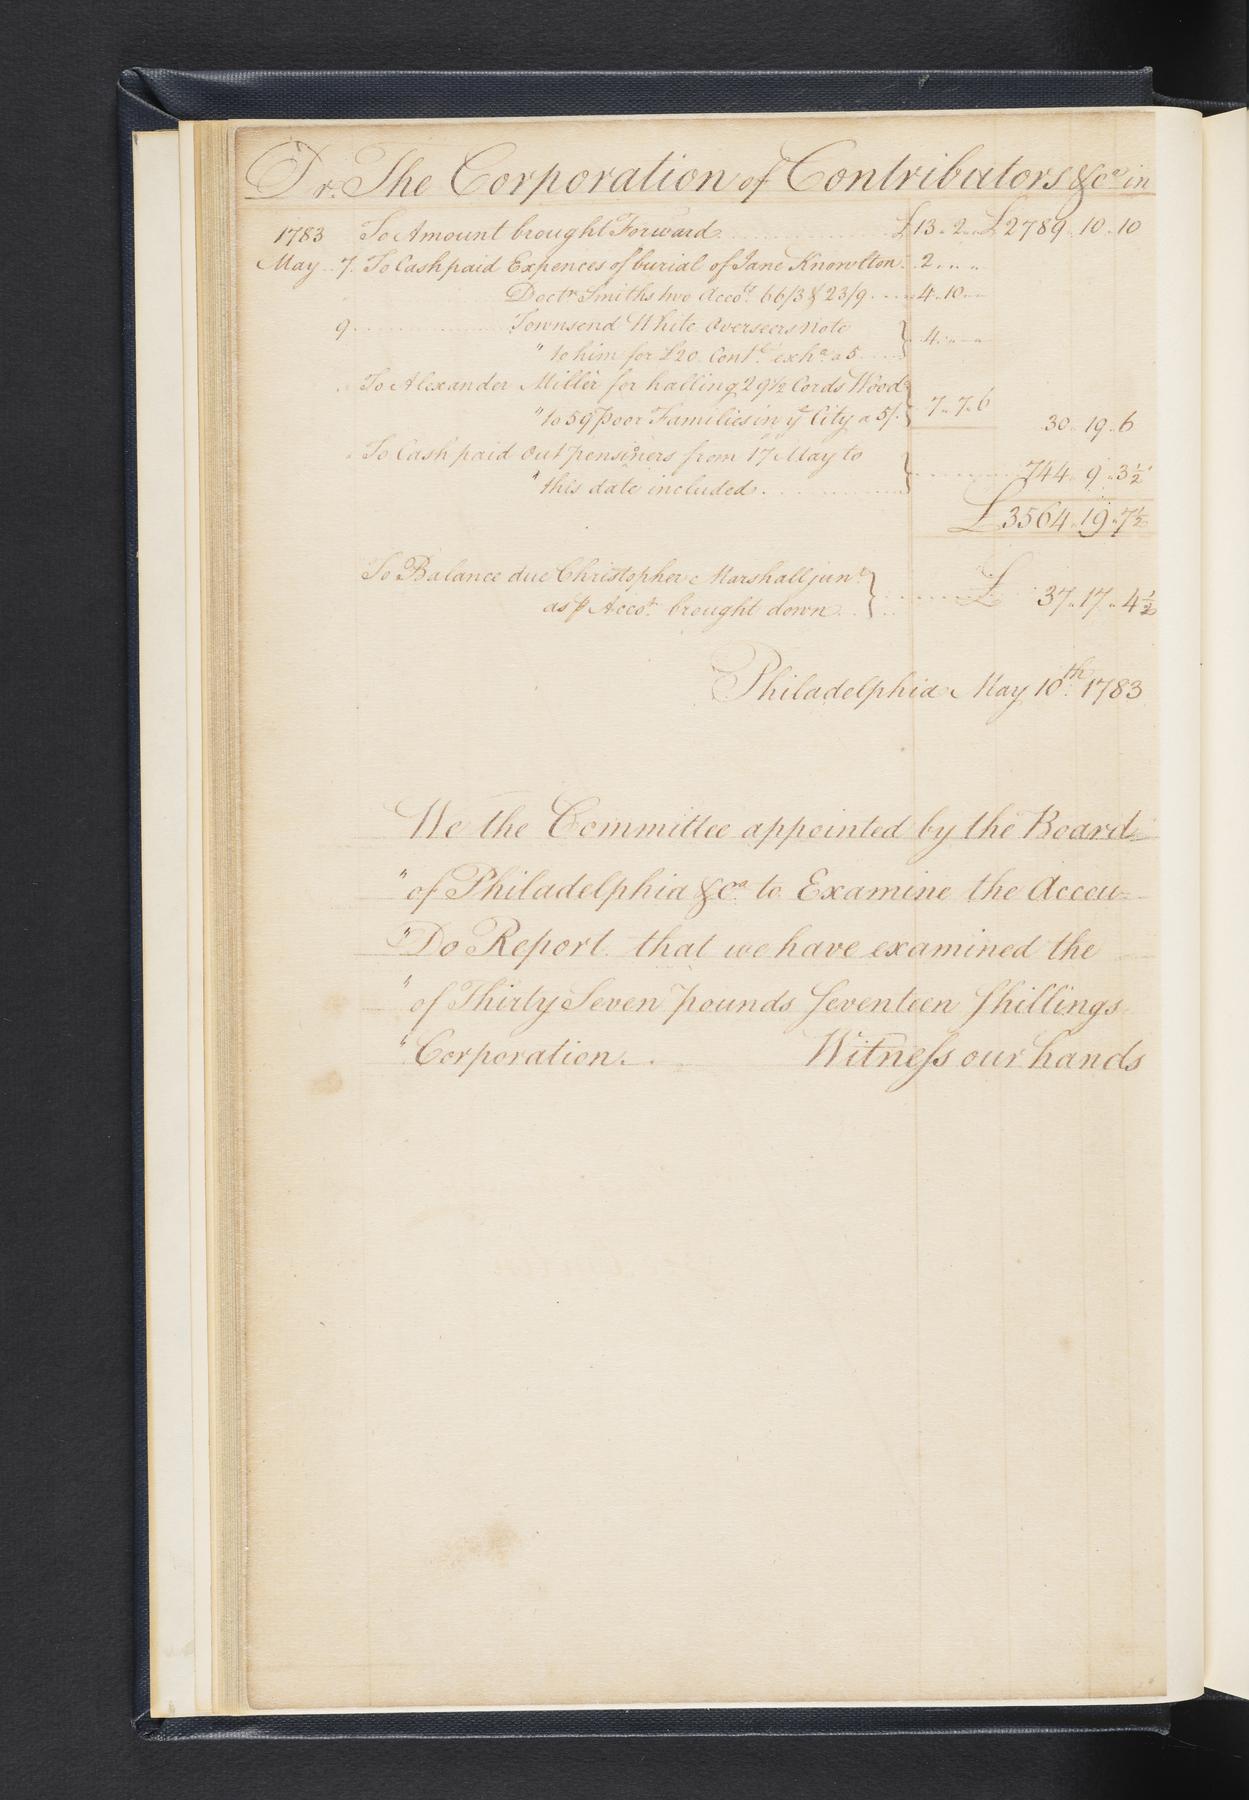 Dr. The Corporation of Contributors &ca in
1783 To Amount brought Forward £13.. 2.. £2789.. 10.. 10
May 7. To Cash paid Expences of burial of Jane Knowlton. 2.. .. ..
Doctr. Smiths two Accots. 66/3 & 23/9 4.. 10..
9 Townsend White Overseers Note
" to him for £20. Contl. exha. a 5 4.. .. ..
To Alexander Miller for halling 29½ Cords Wood
" to 59 poor Families in ye. City a 5/. 7.. 7.. 6 30.. 19.. 6
To Cash paid Out pensiners from 17 May to
" this date included. 744.. 9.. 3½
£3564.. 19.. 7½
To Balance due Christopher Marshall junr.
as ⅌ Accot. brought down £ 37.. 17.. 4½
Philadelphia May 10th. 1783
We the Committee appointed by the Board
" of Philadelphia &ca. to Examine the Accou=
" Do Report that we have examined the
" of Thirty Seven pounds Seventeen Shillings
" Corporation. Witness our hands